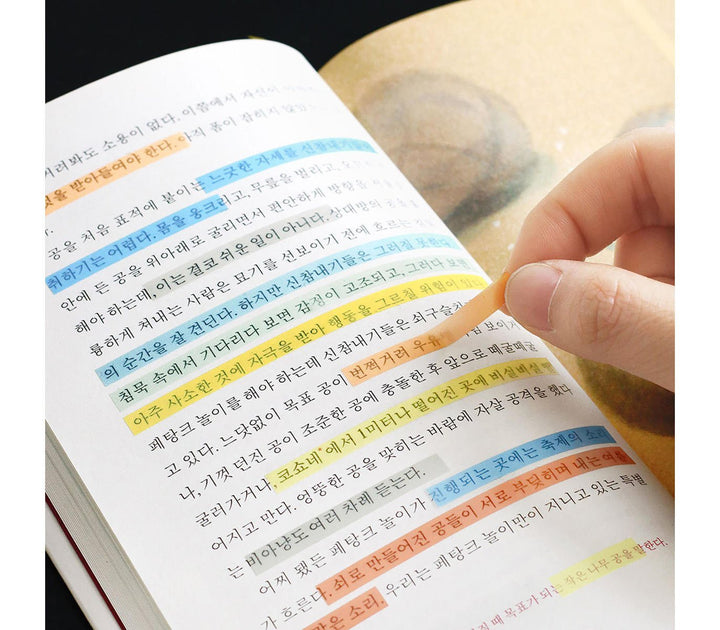 려봐도 소용이 없다. 이쯤에서 자신이
것을 받아들여야 한다. 아직 폼이 잡히지 않았
공을 처음 표적에 붙이는 느긋한 자세를 신참내기들이
취하기는 어렵다. 몸을 웅크리고, 무릎을 벌리고,
안에 든 공을 위아래로 굴리면서 편안하게 방향을
해야 하는데, 이는 결코 쉬운 일이 아니다. 상대방의 공을
륭하게 쳐내는 사람은 묘기를 선보이기 전에 흐르는
의 순간을 잘 견딘다. 하지만 신참내기들은 그러질 못한다.
침묵 속에서 기다리다 보면 감정이 고조되고, 그러다 보면
아주 사소한 것에 자극을 받아 행동을 그르칠 위험이 있
페탕크 놀이를 해야 하는데 신참내기들은 쇠구슬 보이거
고 있다. 느닷없이 목표 공이 번쩍거려 우
나, 기껏 던진 공이 조준한 공에 충돌한 후 앞으로 떼굴떼굴
굴러가거나, 코쇼네*에서 1미터나 떨어진 곳에 비실비실
어지고 만다. 엉뚱한 공을 맞히는 바람에 자살 공격을 했다
는 비아냥도 여러 차례 듣는다.
어찌 됐든 페탕크 놀이가 진행되는 곳에는 축제의 소
가 흐른다. 쇠로 만들어진 공들이 서로 부딪히며 내는 여름
같은 소리. 우리는 페탕크 놀이만이 지니고 있는 특별
때 목표가 되는 작은 나무 공을 말한다.